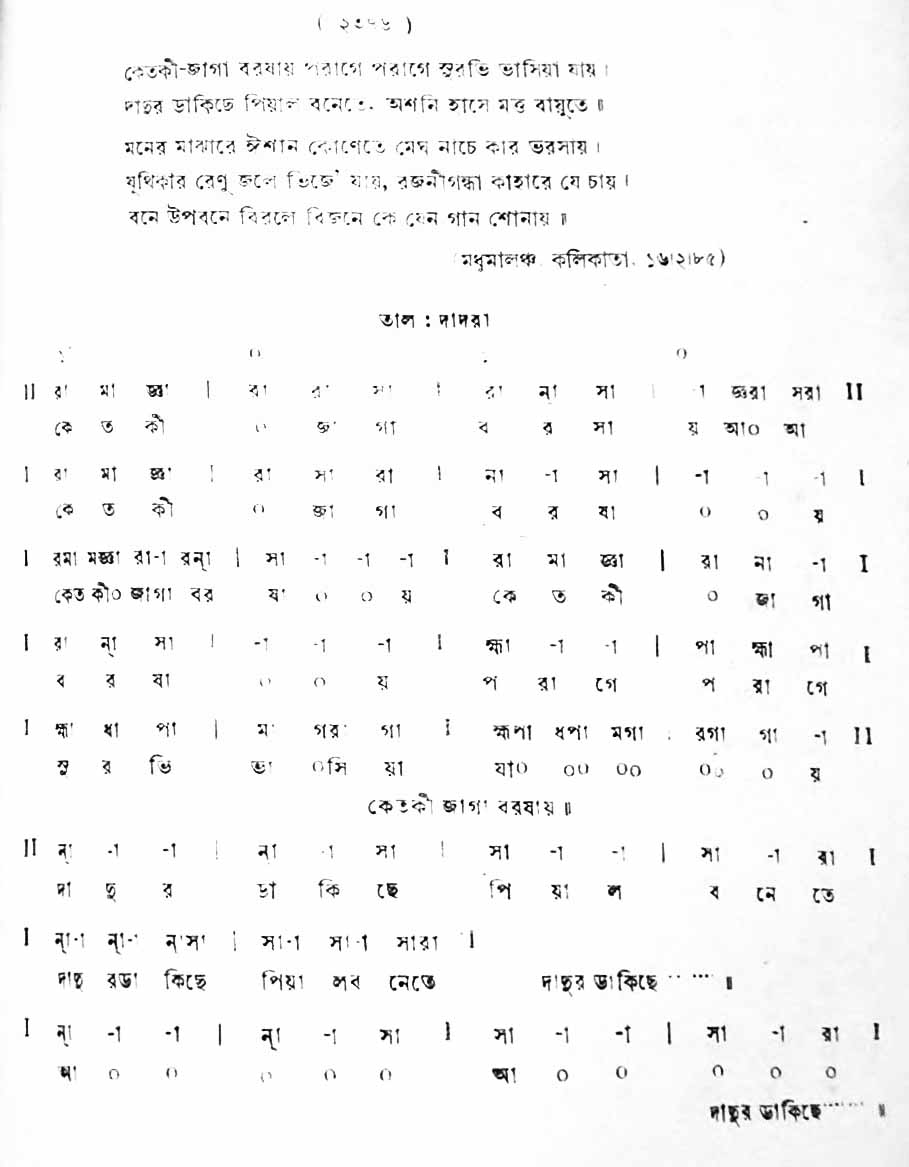 ( ২৩৭৬ )
কেতকী-জাগা বরষায় পরাগে পরাগে সুরভি ভাসিয়া যায়।
দাদুর ডাকিছে পিয়াল বনেতে, অশনি হাসে মত্ত বায়ুতে॥
মনের মাঝারে ঈশান কোণেতে মেঘ নাচে কার ভরসায়।
যূথিকার রেণু জলে ভিজে' যায়, রজনীগন্ধা কাহারে যে চায়।
বনে উপবনে বিরলে বিজনে কে যেন গান শোনায়॥
(মধুমালঞ্চ, কলিকাতা, ১৬।২।৮৫)
তাল : দাদরা
০ ০
II রা মা জ্ঞা | রা রা সা | রা ন্া সা | -া জ্ঞরা সরা II
কে ত কী ০ জা গা ব র সা য় আ০ আ
I রা মা জ্ঞা | রা সা রা | না -া সা | -া -া -া I
কে ত কী ০ জা গা ব র ষা ০ ০ য়
I রমা মজ্ঞা রা-া রন্া | সা -া -া -া I রা মা জ্ঞা | রা না -া I
কেত কী০ জাগা বর ষা ০ ০ য় কে ত কী ০ জা গা
I রা ন্া সা | -া -া -া I হ্মা -া -া | পা হ্মা পা I
ব র ষা ০ ০ য় প রা গে প রা গে
I হ্মা ধা পা | মা গরা গা I হ্মপা ধপা মগা | রগা গা -া II
সু র ভি ভা ০সি য়া যা০ ০০ ০০ ০০ ০ য়
কেতকী জাগা বরষায়॥
II ন্া -া -া | ন্া -া সা | সা -া -া | সা -া রা I
দা দু র ডা কি ছে পি য়া ল ব নে তে
I ন্া-া ন্া-া ন্াসা | সা-া সা-া সারা I
দাদু রডা কিছে পিয়া লব নেতে দাদুর ডাকিছে ·· ····॥
I ন্া -া -া | ন্া -া সা I সা -া -া | সা -া রা I
আ ০ ০ ০ ০ ০ আ ০ ০ ০ ০ ০
দাদুর ডাকিছে······॥